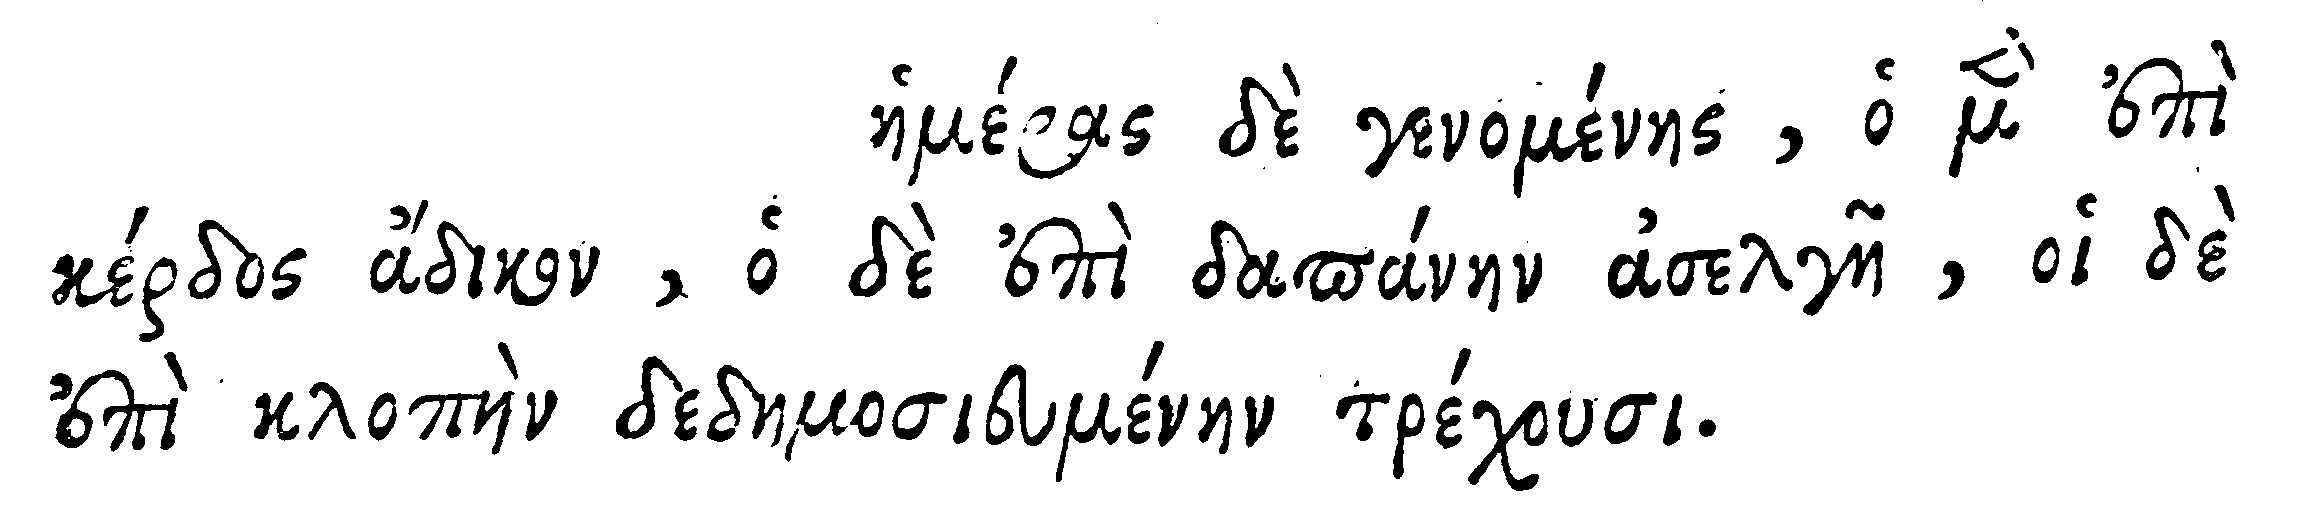 ἡμέρας δὲ γενομένης, ὁ μὲν ἐπὶ
κέρδος ἄδικον, ὁ δὲ ἐπὶ δαπάνην ἀσελγῆ, οἱ δὲ
ἐπὶ κλοπὴν δεδημοσιευμένην τρέχουσι.